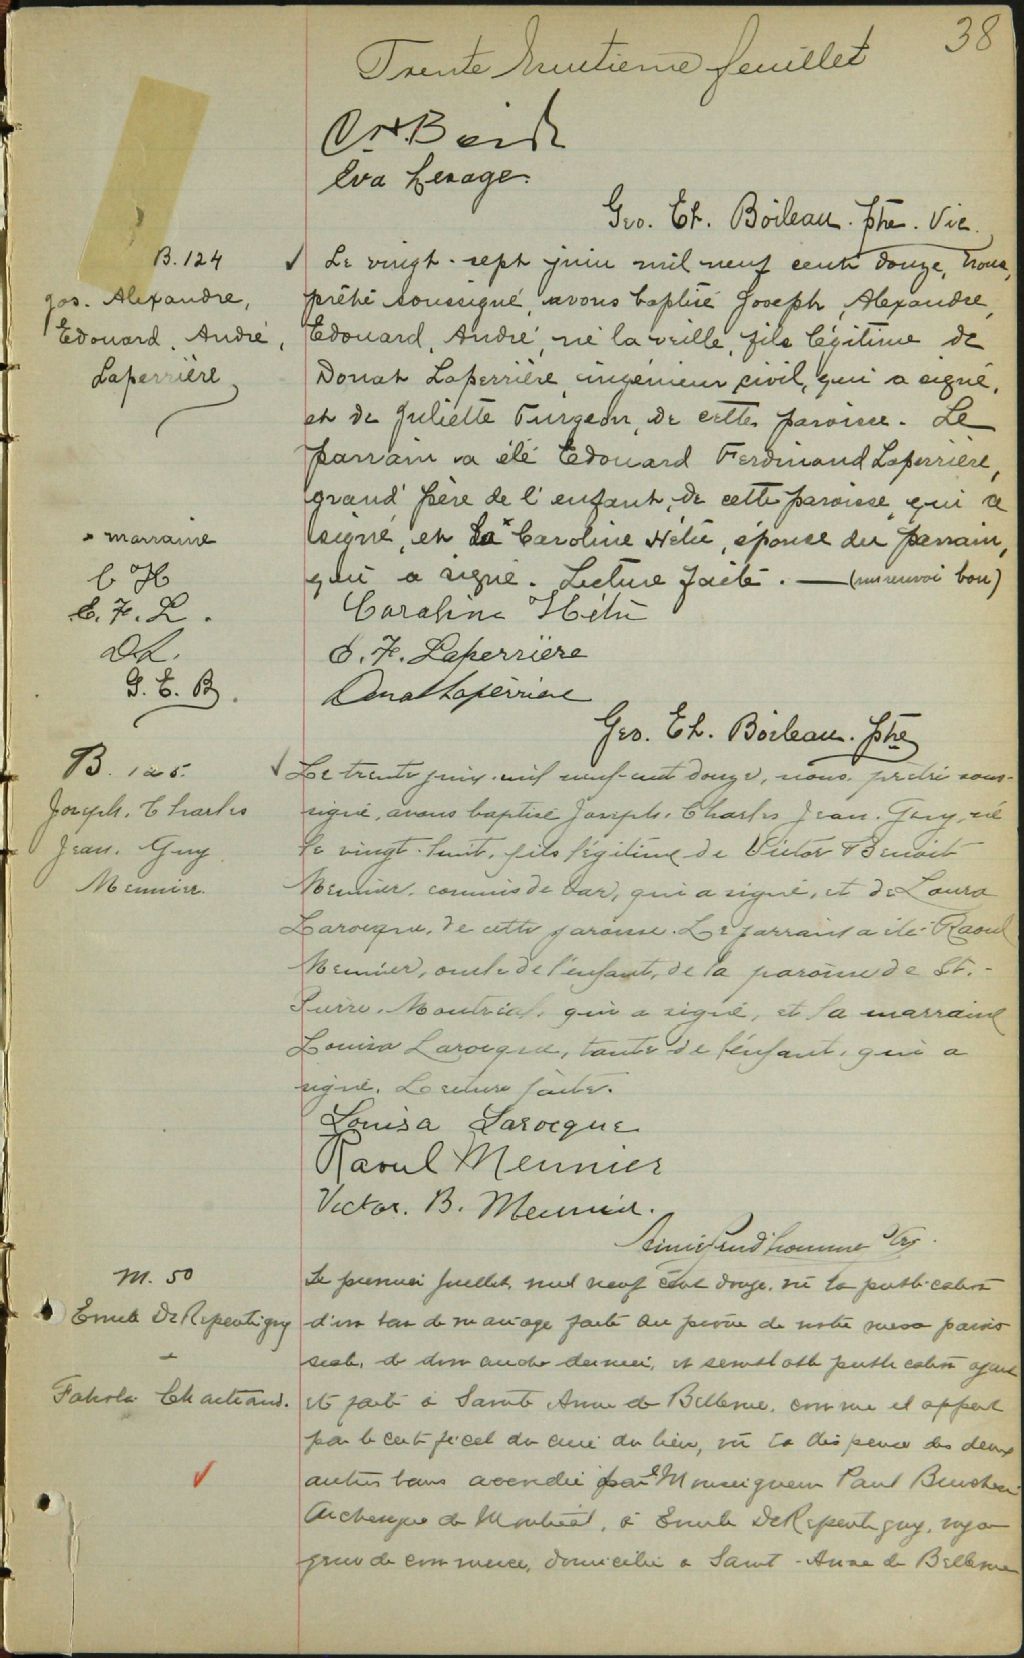 38
Trente huitième feuillet
Eva Lesage.
Geo. Et. Boileau. ptre. Vic.
B. 124
Jos. Alexandre,
Edouard, André,
Laperrière
Le vingt-sept juin mil neuf cent douze, nous,
prêtre soussigné, avons baptisé Joseph, Alexandre,
Edouard, André, né la veille, fils légitime de
Donat Laperrière, ingénieur civil, qui a signé,
et de Juliette Turgeon, de cette paroisse. Le
parrain a été Edouard Ferdinand Laperrière,
grand'père de l'enfant, de cette paroisse, qui a
signé, et la x Caroline Hétu, épouse du parrain,
qui a signé. Lecture faite. — (un renvoi bon)
x marraine
C H
E. F. L.
D. L.
G. E. B.
Caroline Hétu
E. F. Laperrière
Donat Laperrière
Geo. Et. Boileau. ptre
B. 125.
Joseph. Charles
Jean. Guy
Meunier.
Le trente juin mil neuf-cent douze, nous, prêtre sous-
signé, avons baptisé Joseph. Charles Jean. Guy, né
le vingt-huit, fils légitime de Victor Benoit
Meunier, commis de bar, qui a signé, et de Laura
Larocque, de cette paroisse. Le parrain a été Raoul
Meunier, oncle de l'enfant, de la paroisse de St.-
Pierre, Montréal, qui a signé, et la marraine
Louisa Larocque, tante de l'enfant, qui a
signé. Lecture faite.
Louisa Larocque
Raoul Meunier
Victor. B. Meunier.
Prud'homme
M. 50
Emile DeRepentigny
+
Chartrand.
Le premier Juillet, mil neuf cent douze, vu la publication
d'un ban de mariage faite au prône de notre messe parois
siale, de dimanche dernier, et semblable publication ayant
été faite à Sainte Anne de Bellevue, comme il appert
par le certificat du curé du lieu, vu la dispense des deux
autres bans accordée par Monseigneur Paul Bruchesi
Archevêque de Montréal, à Emile DeRepentigny, voya
geur de commerce, domicilié à Saint-Anne de Bellevue